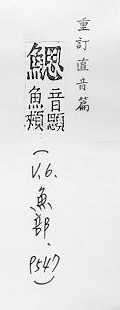 重訂直音篇
鰓
音顋
魚頰
(V.6.魚部.P547)